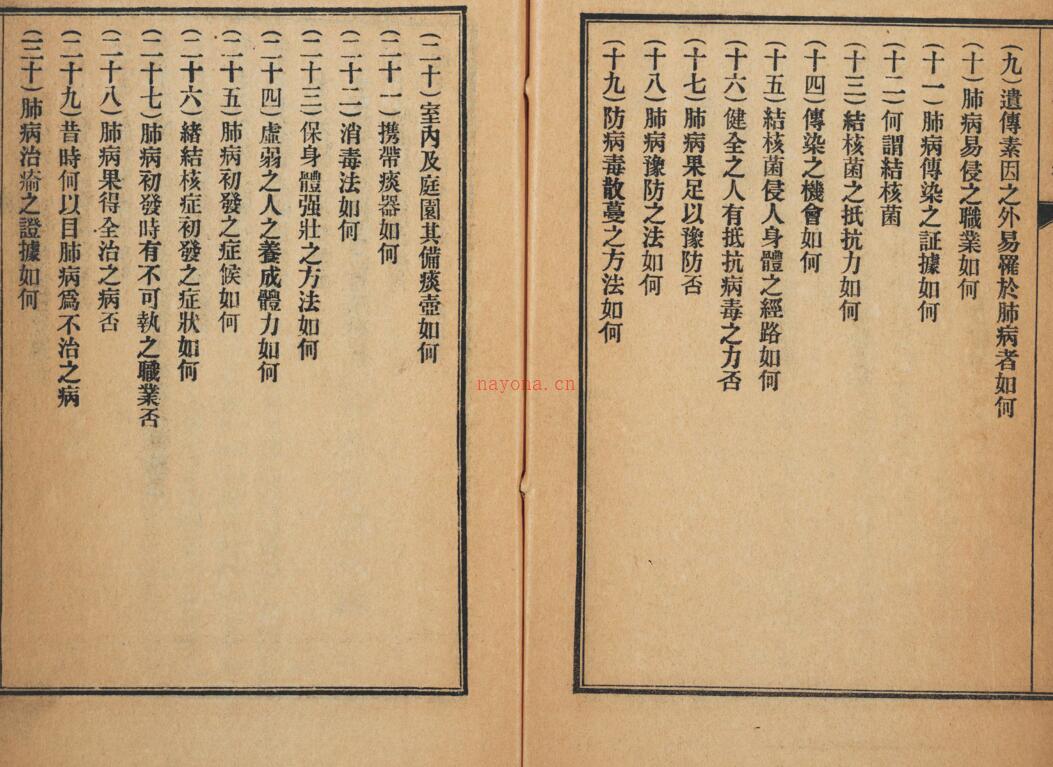 (九)遺傳素因之外易罹於肺病者如何
(十)肺病易侵之職業如何
(十一)肺病傳染之証據如何
(十二)何謂結核菌
(十三)結核菌之抵抗力如何
(十四)傳染之機會如何
(十五)結核菌侵人身體之經路如何
(十六)健全之人有抵抗病毒之力否
(十七)肺病果足以豫防否
(十八)肺病豫防之法如何
(十九)防病毒散蔓之方法如何
(二十)室內及庭園其備痰壺如何
(二十一)携帶痰器如何
(二十二)消毒法如何
(二十三)保身體强壯之方法如何
(二十四)虛弱之人之養成體力如何
(二十五)肺病初發之症候如何
(二十六)緒結核症初發之症狀如何
(二十七)肺病初發時有不可執之職業否
(二十八)肺病果得全治之病否
(二十九)昔時何以目肺病爲不治之病
(三十)肺病治瘉之證據如何
nayona.cn